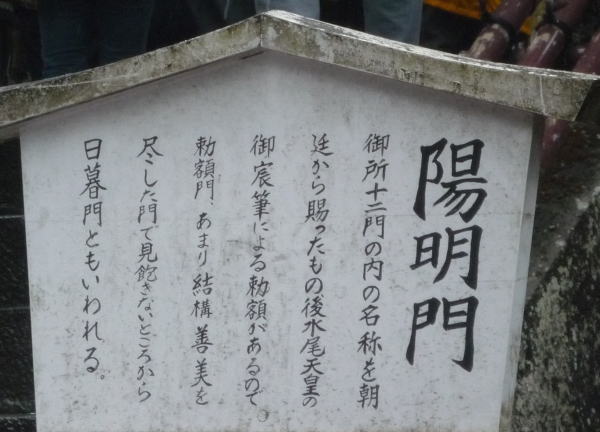 陽明門
御所十二門の内の名称を朝
廷から賜ったもの後水尾天皇の
御宸筆による勅額があるので
勅額門、あまり結構善美を
尽こした門で見飽きないところから
日暮門ともいわれる。